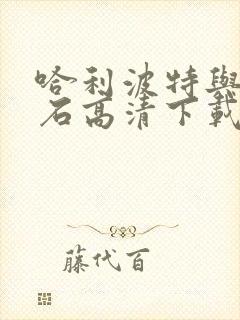 哈利波特與
石高清下載
藤代百